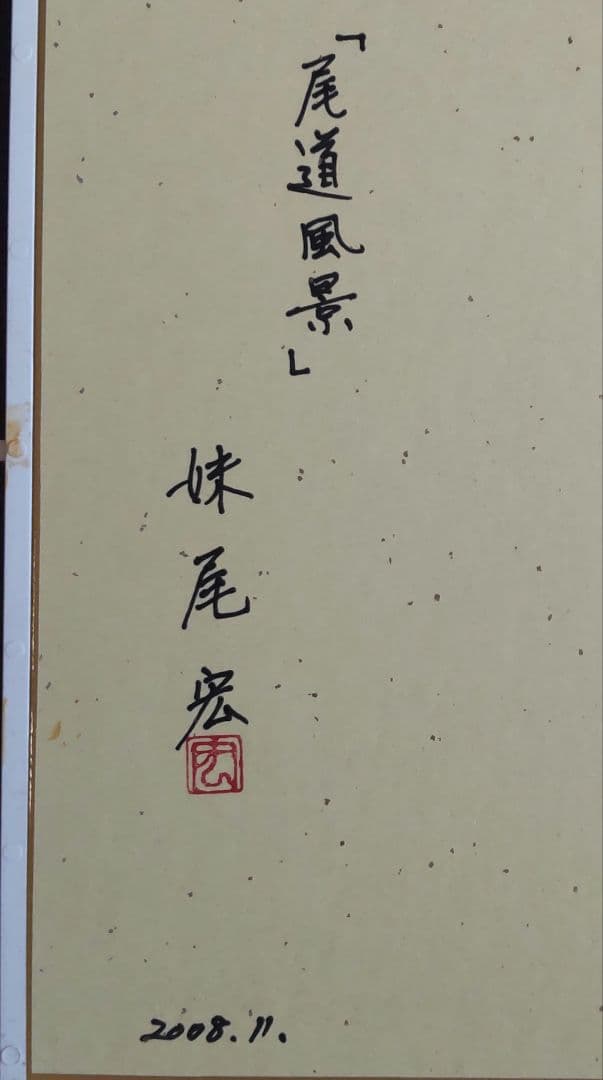 「尾道風景」
妹尾宏
宏
2008.11.